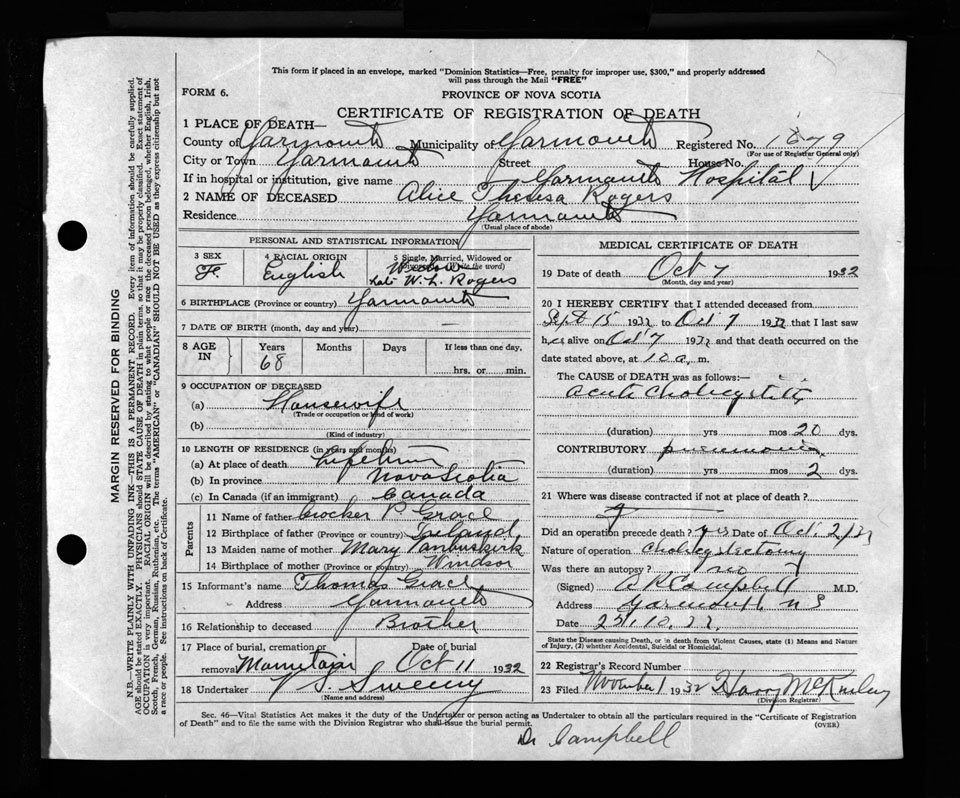 This form if placed in an envelope, marked "Dominion Statistics—Free, penalty for improper use, $300," and properly addressed
will pass through the Mail "FREE"
FORM 6.
PROVINCE OF NOVA SCOTIA
CERTIFICATE OF REGISTRATION OF DEATH
1 PLACE OF DEATH—
County of Yarmouth Municipality of Yarmouth Registered No. 1879
(For use of Registrar General only)
City or Town Yarmouth Street House No.
If in hospital or institution, give name Yarmouth Hospital
2 NAME OF DECEASED Alice Theresa Rogers
Residence Yarmouth
(Usual place of abode)
PERSONAL AND STATISTICAL INFORMATION
3 SEX 4 RACIAL ORIGIN 5 Single, Married, Widowed or
Divorced (Write the word)
F. English Widow
Late W. L. Rogers
6 BIRTHPLACE (Province or country) Yarmouth
7 DATE OF BIRTH (month, day and year) —
8 AGE IN Years Months Days If less than one day,
68 hrs. or min.
9 OCCUPATION OF DECEASED
(a) Housewife
(Trade or occupation or kind of work)
(b)
(Kind of industry)
10 LENGTH OF RESIDENCE (in years and months)
(a) At place of death Lifetime
(b) In province Nova Scotia
(c) In Canada (if an immigrant) Canada
Parents
11 Name of father Crocker P Grace
12 Birthplace of father (Province or country) Ireland
13 Maiden name of mother Mary Vanbuskirk
14 Birthplace of mother (Province or country) Windsor
15 Informant's name Thomas Grace
Address Yarmouth
16 Relationship to deceased Brother
17 Place of burial, cremation or removal Date of burial
Oct 11 1932
18 Undertaker V S Sweeny
(Name and address)
MEDICAL CERTIFICATE OF DEATH
19 Date of death Oct 7 1932
(Month, day and year)
20 I HEREBY CERTIFY that I attended deceased from
Sept 15 1932 to Oct 7 1932 that I last saw
her alive on Oct 7 1932 and that death occurred on the
date stated above, at 10 a. m.
The CAUSE of DEATH was as follows:—
Acute Cholecystitis
(duration) yrs mos 20 dys.
CONTRIBUTORY pneumonia
(duration) yrs mos 2 dys.
21 Where was disease contracted if not at place of death?
Did an operation precede death? yes Date of Oct 2/32
Nature of operation Cholecystectomy
Was there an autopsy? no
(Signed) A R Campbell M.D.
Address Yarmouth N S
Date 25.10.32.
State the Disease causing Death, or in death from Violent Causes, state (1) Means and Nature
of Injury, (2) whether Accidental, Suicidal or Homicidal.
22 Registrar's Record Number
23 Filed November 1 1932 Harry McKinley
(Division Registrar)
Sec. 46—Vital Statistics Act makes it the duty of the Undertaker or person acting as Undertaker to obtain all the particulars required in the "Certificate of Registration
of Death" and to file the same with the Division Registrar who shall issue the burial permit.
(OVER)
Dr Campbell
MARGIN RESERVED FOR BINDING
N.B.—WRITE PLAINLY WITH UNFADING INK—THIS IS A PERMANENT RECORD. Every item of information should be carefully supplied.
AGE should be stated EXACTLY. PHYSICIANS should STATE CAUSE OF DEATH in plain terms, so that it may be properly classified. Exact statement of
OCCUPATION is very important. RACIAL ORIGIN will be described by stating to what people or race the deceased person belonged, whether English, Irish,
Scotch, French, German, Russian, Ruthenian, etc. The terms "AMERICAN" or "CANADIAN" SHOULD NOT BE USED as they express citizenship but not
a race or people. See instructions on back of Certificate.